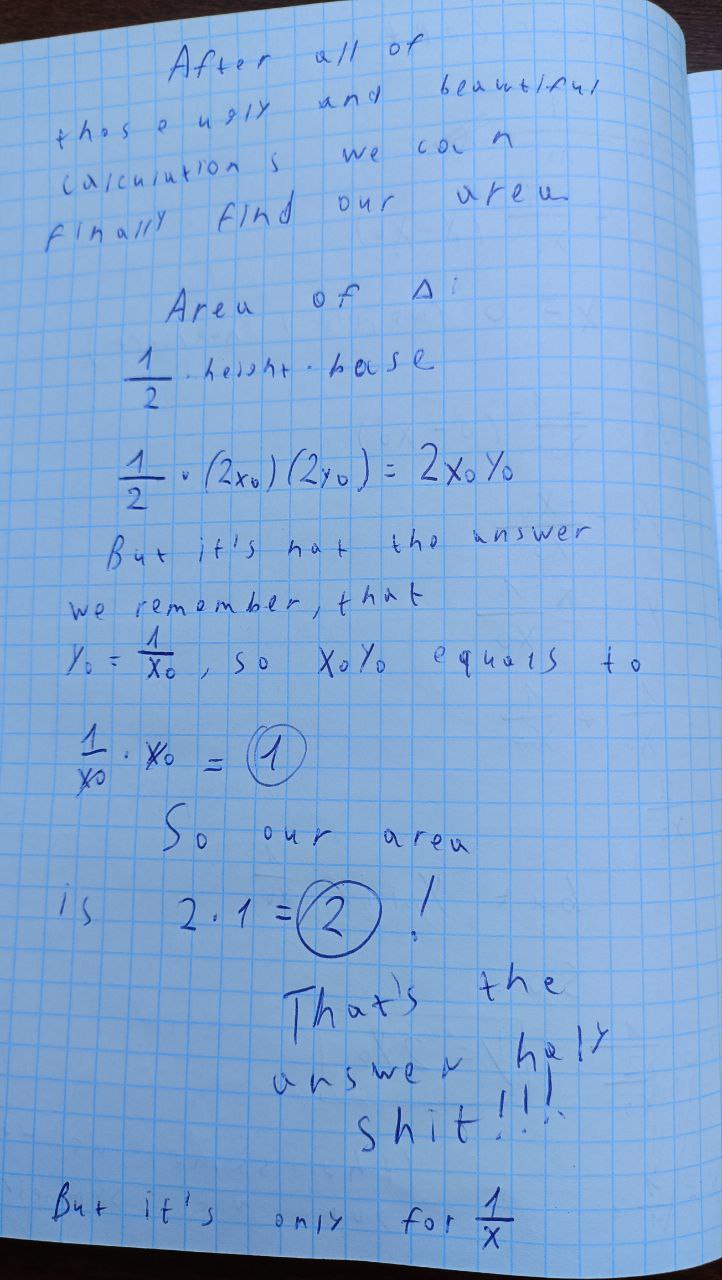 After all of
those ugly and beautiful
calculations we can
finally find our area
Area of Δ:
1/2 · height · base
1/2 · (2x₀)(2y₀) = 2x₀y₀
But it's not the answer
we remember, that
y₀ = 1/x₀, so x₀y₀ equals to
1/x₀ · x₀ = 1
So our area
is 2·1 = 2 !
That's the
answer holy
shit!!!
But it's only for 1/x